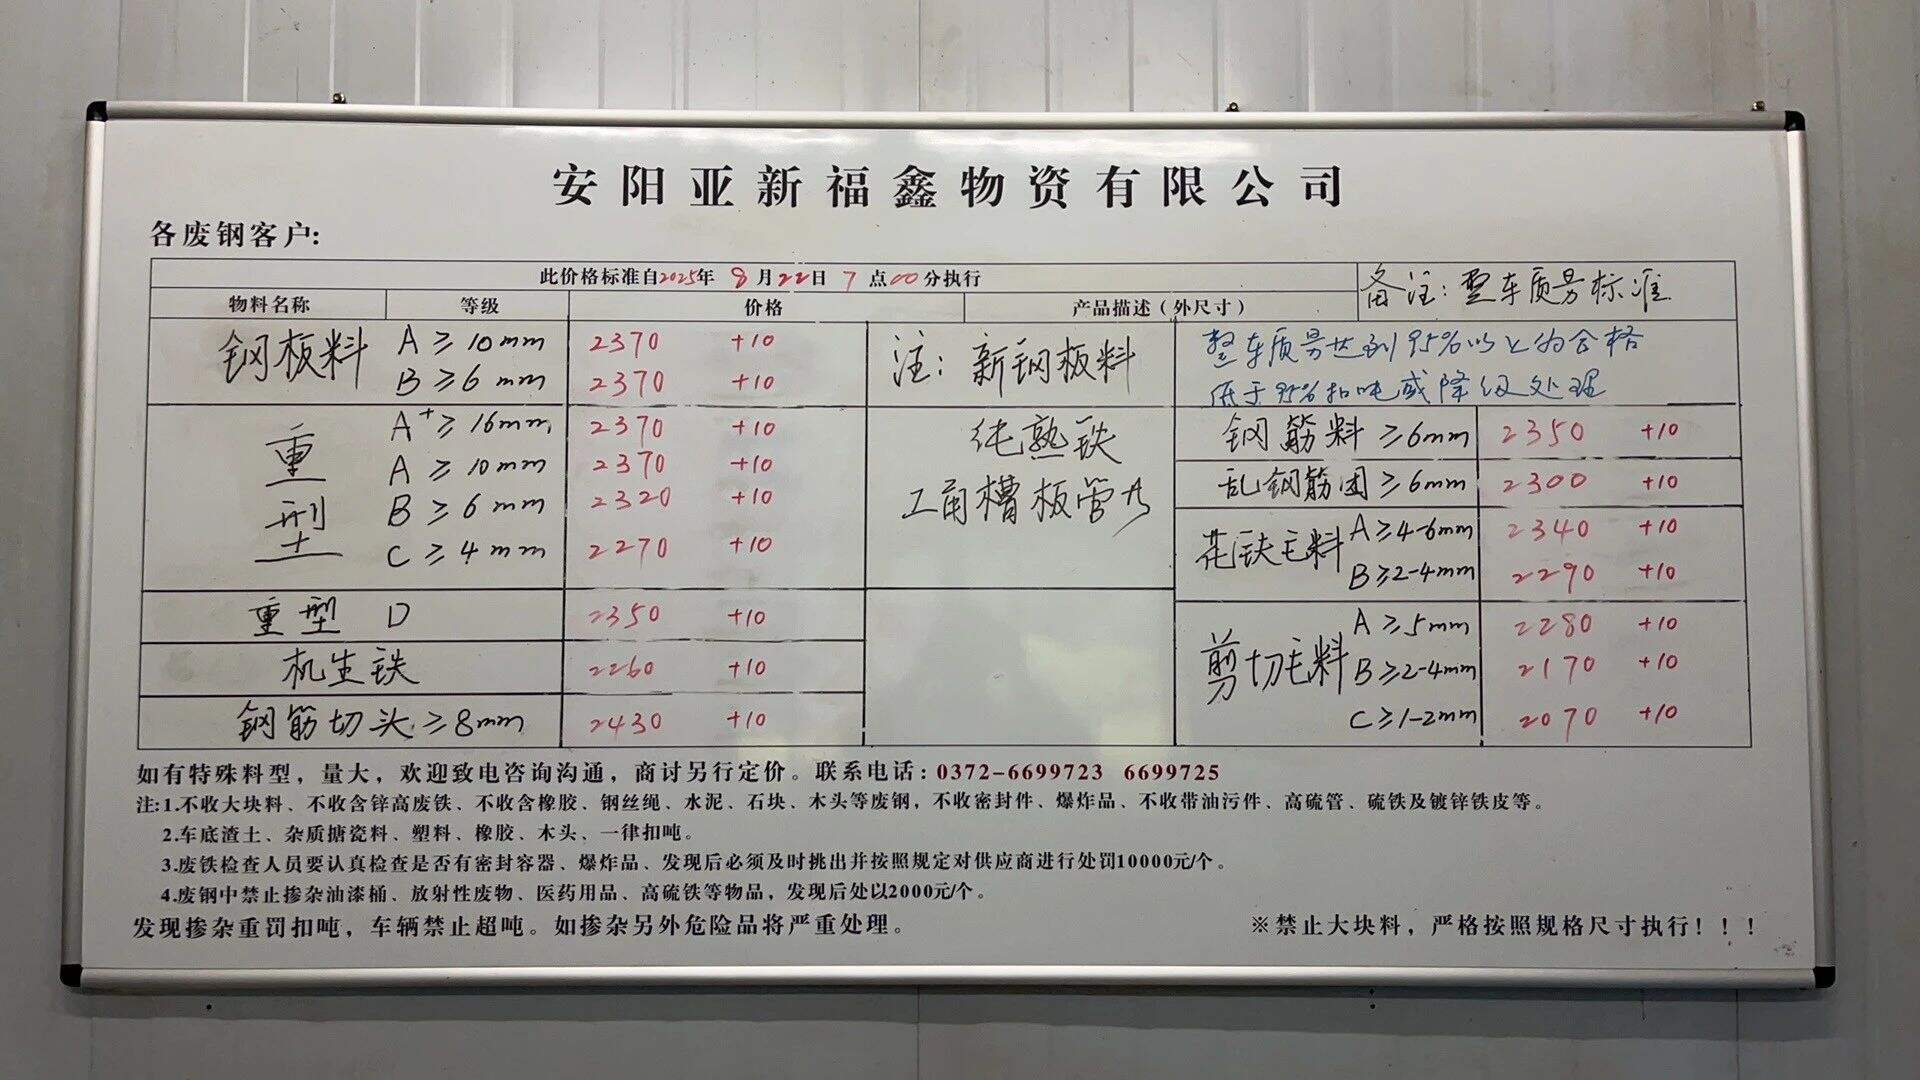 安阳亚新福鑫物资有限公司
各废钢客户:
此价格标准自2025年 8月22日 7点00分执行
备注:整车质量标准
物料名称 等级 价格 产品描述(外尺寸)
钢板料 A≥10mm 2370 +10
B≥6mm 2370 +10
注:新钢板料
整车质量达到95%以上为合格
低于95%扣吨或降级处理
重型 A⁺≥16mm 2370 +10
A≥10mm 2370 +10
B≥6mm 2320 +10
C≥4mm 2270 +10
纯熟铁
工角槽板管
重型 D 2350 +10
机生铁 2260 +10
钢筋切头≥8mm 2430 +10
钢筋料≥6mm 2350 +10
乱钢筋团≥6mm 2300 +10
花铁毛料 A≥4-6mm 2340 +10
B≥2-4mm 2290 +10
剪切毛料 A≥5mm 2280 +10
B≥2-4mm 2170 +10
C≥1-2mm 2070 +10
如有特殊料型，量大，欢迎致电咨询沟通，商讨另行定价。联系电话：0372-6699723 6699725
注:1.不收大块料、不收含锌高废铁、不收含橡胶、钢丝绳、水泥、石块、木头等废钢，不收密封件、爆炸品、不收带油污件、高硫管、硫铁及镀锌铁皮等。
2.车底渣土、杂质搪瓷料、塑料、橡胶、木头、一律扣吨。
3.废铁检查人员要认真检查是否有密封容器、爆炸品、发现后必须及时挑出并按照规定对供应商进行处罚10000元/个。
4.废钢中禁止掺杂油漆桶、放射性废物、医药用品、高硫铁等物品，发现后处以2000元/个。
发现掺杂重罚扣吨，车辆禁止超吨。如掺杂另外危险品将严重处理。
※禁止大块料，严格按照规格尺寸执行！！！